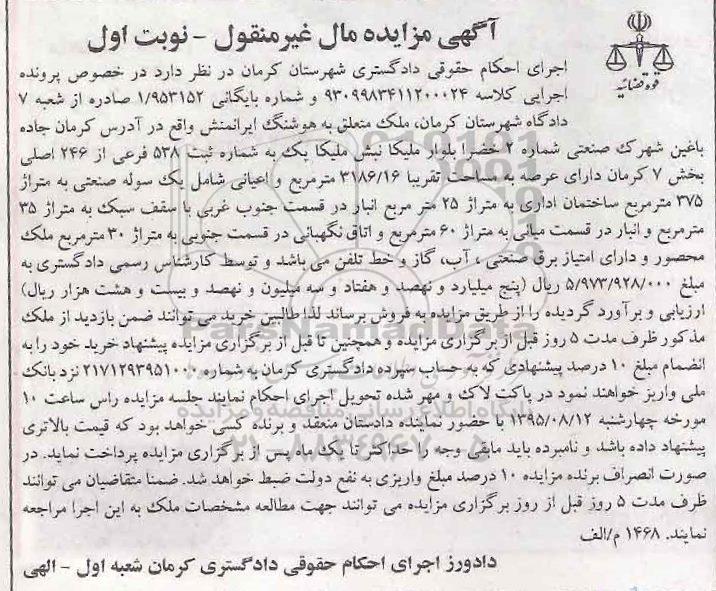 آگهی مزایده مال غیرمنقول - نوبت اول
قوه قضائیه
اجرای احکام حقوقی دادگستری شهرستان کرمان در نظر دارد در خصوص پرونده
اجرایی کلاسه ۹۳۰۹۹۸۳۴۱۱۲۰۰۰۲۴ و شماره بایگانی ۱/۹۵۳۱۵۲ صادره از شعبه ۷
دادگاه شهرستان کرمان، ملک متعلق به هوشنگ ایرانمنش واقع در آدرس کرمان جاده
باغین شهرک صنعتی شماره ۲ خضرا بلوار ملیکا نبش ملیکا یک به شماره ثبت ۵۳۸ فرعی از ۲۴۶ اصلی
بخش ۷ کرمان دارای عرصه به مساحت تقریبا ۳۱۸۶/۱۶ مترمربع و اعیانی شامل یک سوله صنعتی به متراژ
۳۷۵ مترمربع ساختمان اداری به متراژ ۲۵ متر مربع انبار در قسمت جنوب غربی با سقف سبک به متراژ ۳۵
مترمربع و انبار در قسمت میانی به متراژ ۶۰ مترمربع و اتاق نگهبانی در قسمت جنوبی به متراژ ۳۰ مترمربع ملک
محصور و دارای امتیاز برق صنعتی ، آب، گاز و خط تلفن می باشد و توسط کارشناس رسمی دادگستری به
مبلغ ۵/۹۷۳/۹۲۸/۰۰۰ ریال (پنج میلیارد و نهصد و هفتاد و سه میلیون و نهصد و بیست و هشت هزار ریال)
ارزیابی و برآورد گردیده را از طریق مزایده به فروش برساند لذا طالبین خرید می توانند ضمن بازدید از ملک
مذکور ظرف مدت ۵ روز قبل از برگزاری مزایده و همچنین تا قبل از برگزاری مزایده پیشنهاد خرید خود را به
انضمام مبلغ ۱۰ درصد پیشنهادی که به حساب سپرده دادگستری کرمان به شماره ۲۱۷۱۲۹۳۹۵۱۰۰۰ نزد بانک
ملی واریز خواهند نمود در پاکت لاک و مهر شده تحویل اجرای احکام نمایند جلسه مزایده راس ساعت ۱۰
مورخه چهارشنبه ۱۳۹۵/۰۸/۱۲ با حضور نماینده دادستان منعقد و برنده کسی خواهد بود که قیمت بالاتری
پیشنهاد داده باشد و نامبرده باید مابقی وجه را حداکثر تا یک ماه پس از برگزاری مزایده پرداخت نماید. در
صورت انصراف برنده مزایده ۱۰ درصد مبلغ واریزی به نفع دولت ضبط خواهد شد. ضمنا متقاضیان می توانند
ظرف مدت ۵ روز قبل از روز برگزاری مزایده می توانند جهت مطالعه مشخصات ملک به این اجرا مراجعه
نمایند. ۱۴۶۸ م/الف
دادورز اجرای احکام حقوقی دادگستری کرمان شعبه اول - الهی
ParsNamadData